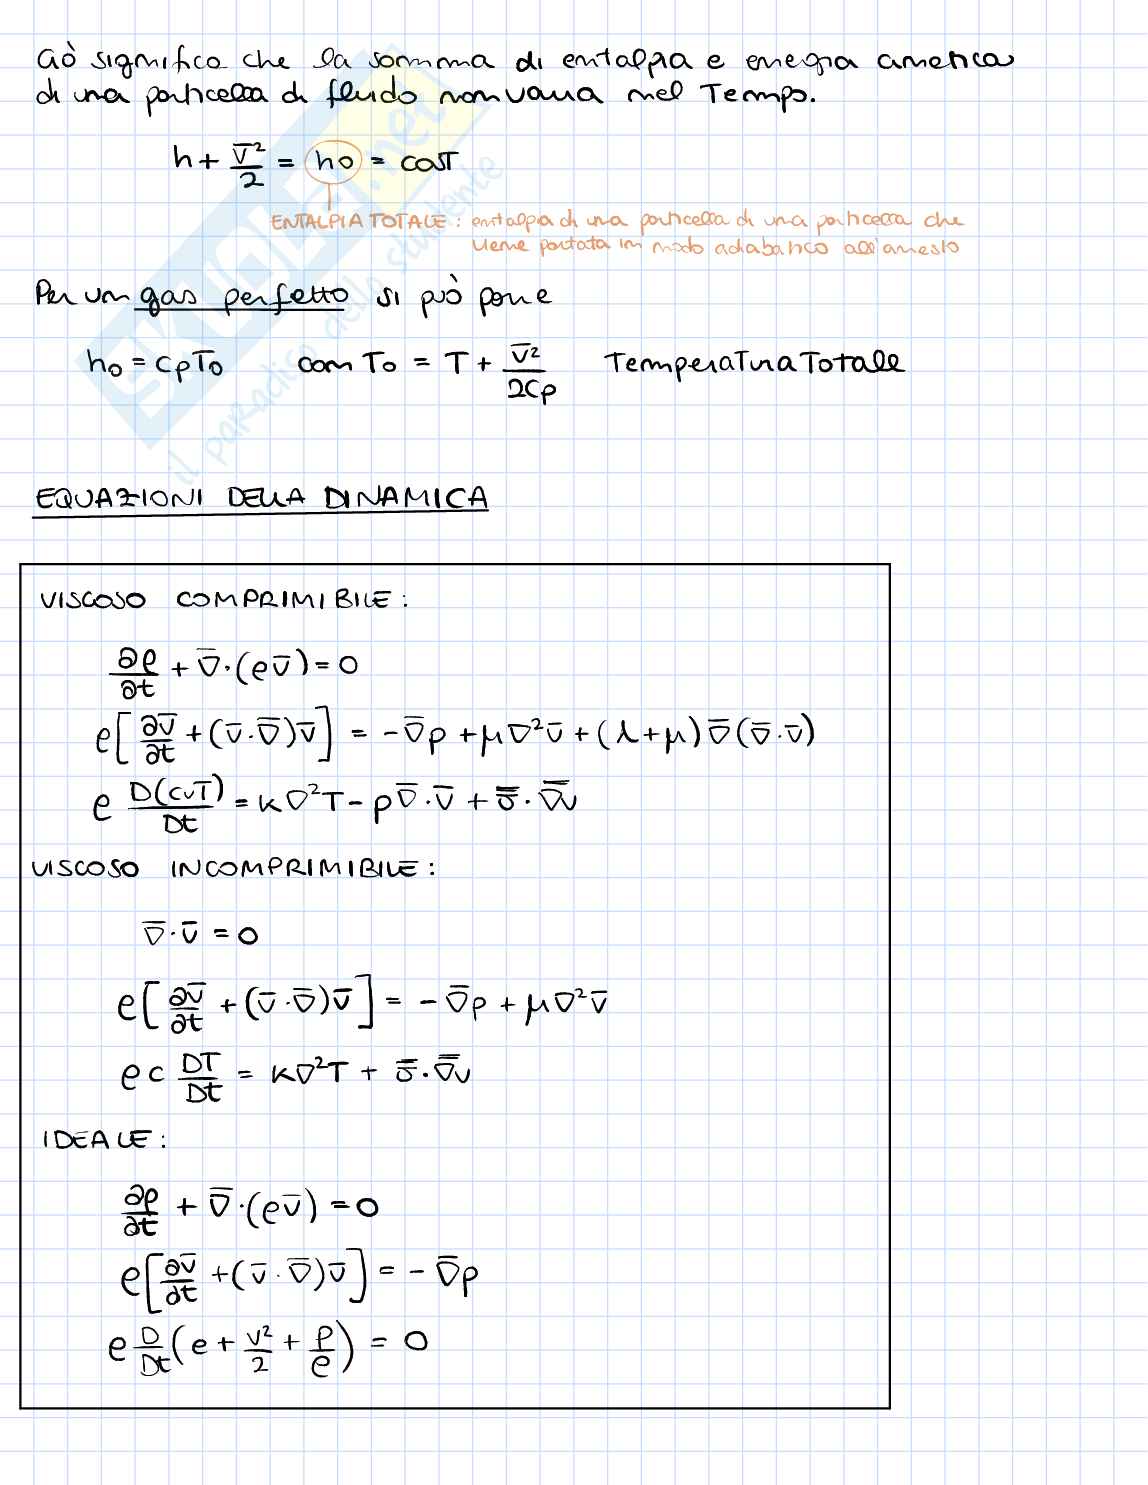 Ciò significa che la somma di entalpia e energia cinetica
di una particella di fluido non varia nel Tempo.
h + v̅²/2 = h₀ = cosT
ENTALPIA TOTALE : entalpia di una particella di una particella che
viene portata in modo adiabatico all'arresto
Per un gas perfetto si può porre
h₀ = cpT₀ con T₀ = T + v̅²/2cp TemperaTura ToTale
EQUAZIONI DELLA DINAMICA
VISCOSO COMPRIMIBILE :
∂ρ/∂t + ∇̅·(ρv̅) = 0
ρ[∂v̅/∂t + (v̅·∇̅)v̅] = -∇̅p + μ∇²v̅ + (λ+μ)∇̅(∇̅·v̅)
ρ D(cvT)/Dt = k∇²T - p∇̅·v̅ + σ̿·∇̿v
VISCOSO INCOMPRIMIBILE :
∇̅·v̅ = 0
ρ[∂v̅/∂t + (v̅·∇̅)v̅] = -∇̅p + μ∇²v̅
ρc DT/Dt = k∇²T + σ̿·∇̿v
IDEALE :
∂ρ/∂t + ∇̅·(ρv̅) = 0
ρ[∂v̅/∂t + (v̅·∇̅)v̅] = -∇̅p
ρ D/Dt (e + v²/2 + p/ρ) = 0
SKUOLA.net
il paradiso dello studente